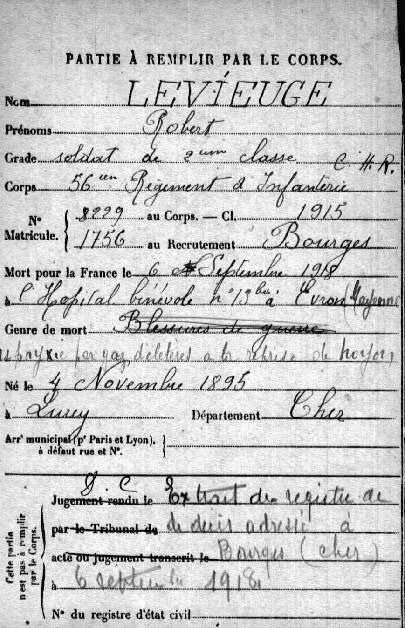 PARTIE À REMPLIR PAR LE CORPS.
Nom LEVIEUGE
Prénoms Robert
Grade soldat de 2eme classe C.H.R.
Corps 56eme Régiment d'Infanterie
N° Matricule. 8229 au Corps. — Cl. 1915
1756 au Recrutement Bourges
Mort pour la France le 6 Septembre 1918
à l'Hopital bénévole n° 13 bis à Evron (Mayenne
Genre de mort Blessures de guerre
aspxyxie par gaz délétères a la reprise de noyon
Né le 4 Novembre 1895
à Département Cher
Arrt municipal (pr Paris et Lyon),
à défaut rue et N°.
Cette partie n'est pas à remplir par le Corps.
Jugement rendu le Extrait du registre de
par le Tribunal de de décès adressé à
acte ou jugement transcrit le Bourges (cher)
à 6 septembre 1918
N° du registre d'état civil